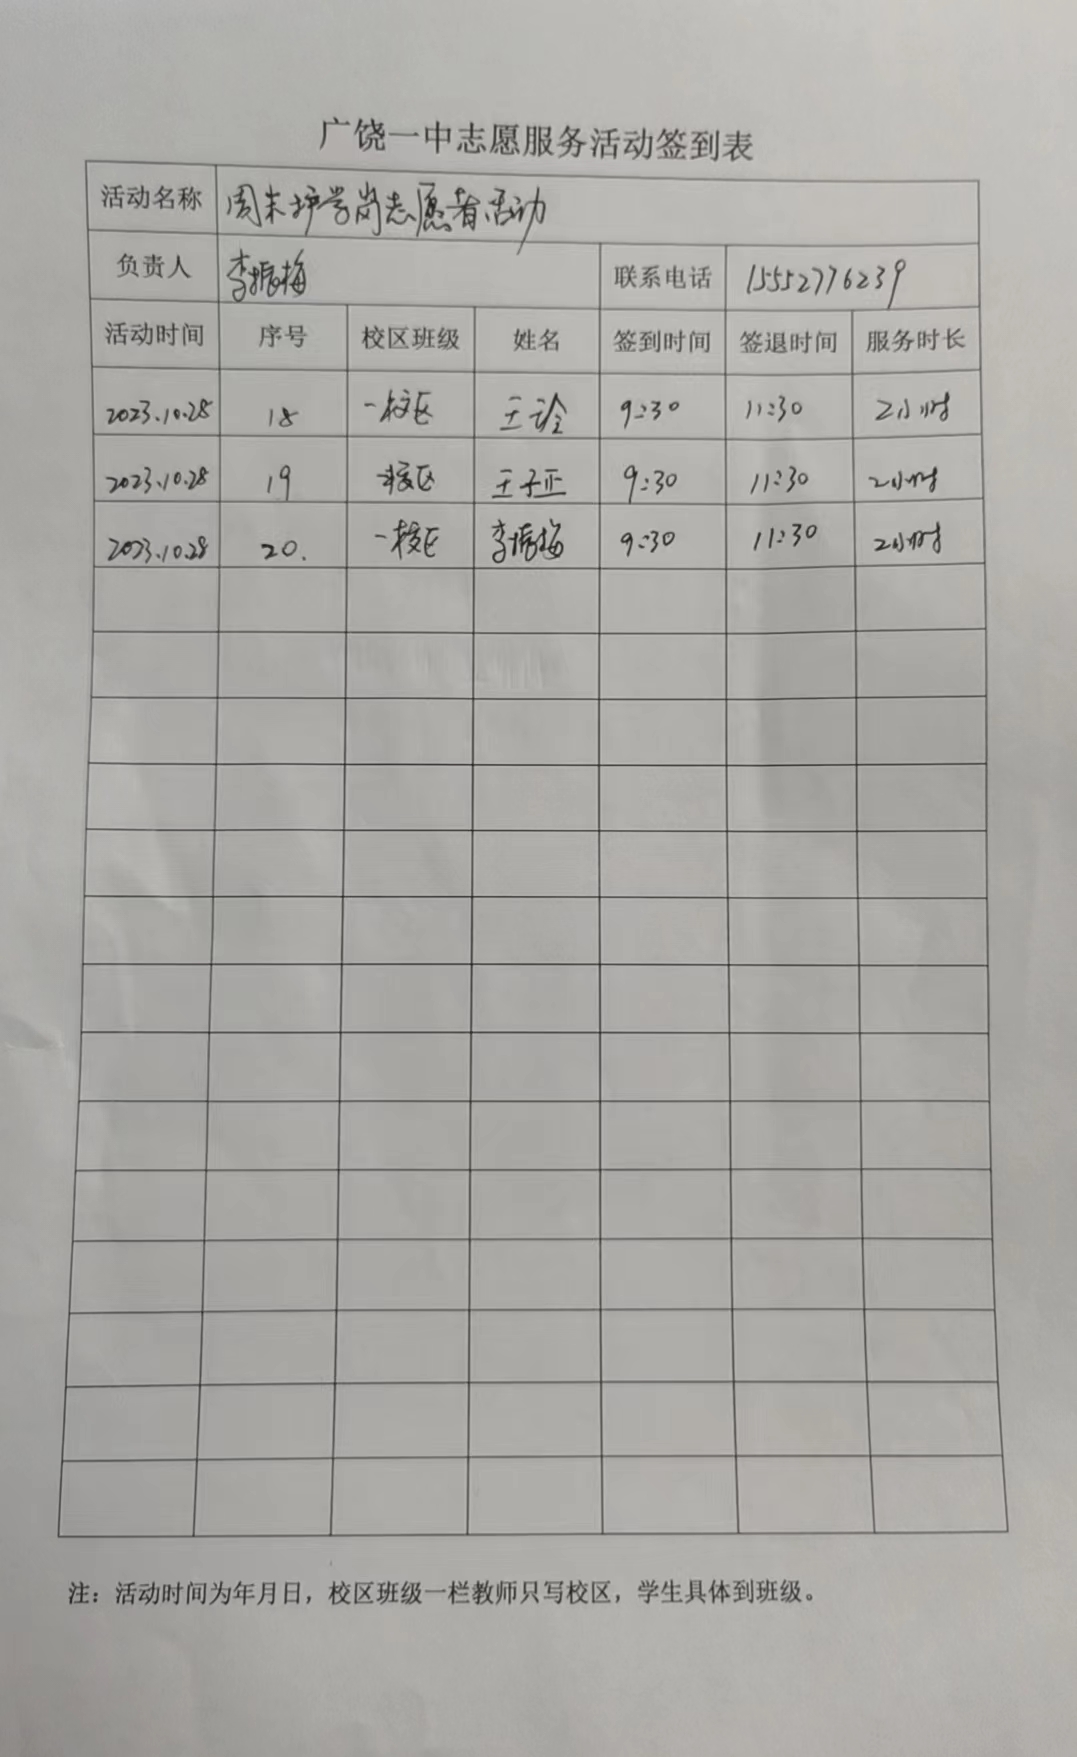 广饶一中志愿服务活动签到表
活动名称 周末护学岗志愿者活动
负责人 李振梅 联系电话 15552776239
活动时间 序号 校区班级 姓名 签到时间 签退时间 服务时长
2023.10.28 18 一校区 王诠 9:30 11:30 2小时
2023.10.28 19 一校区 王子正 9:30 11:30 2小时
2023.10.28 20. 一校区 李振梅 9:30 11:30 2小时
注：活动时间为年月日，校区班级一栏教师只写校区，学生具体到班级。